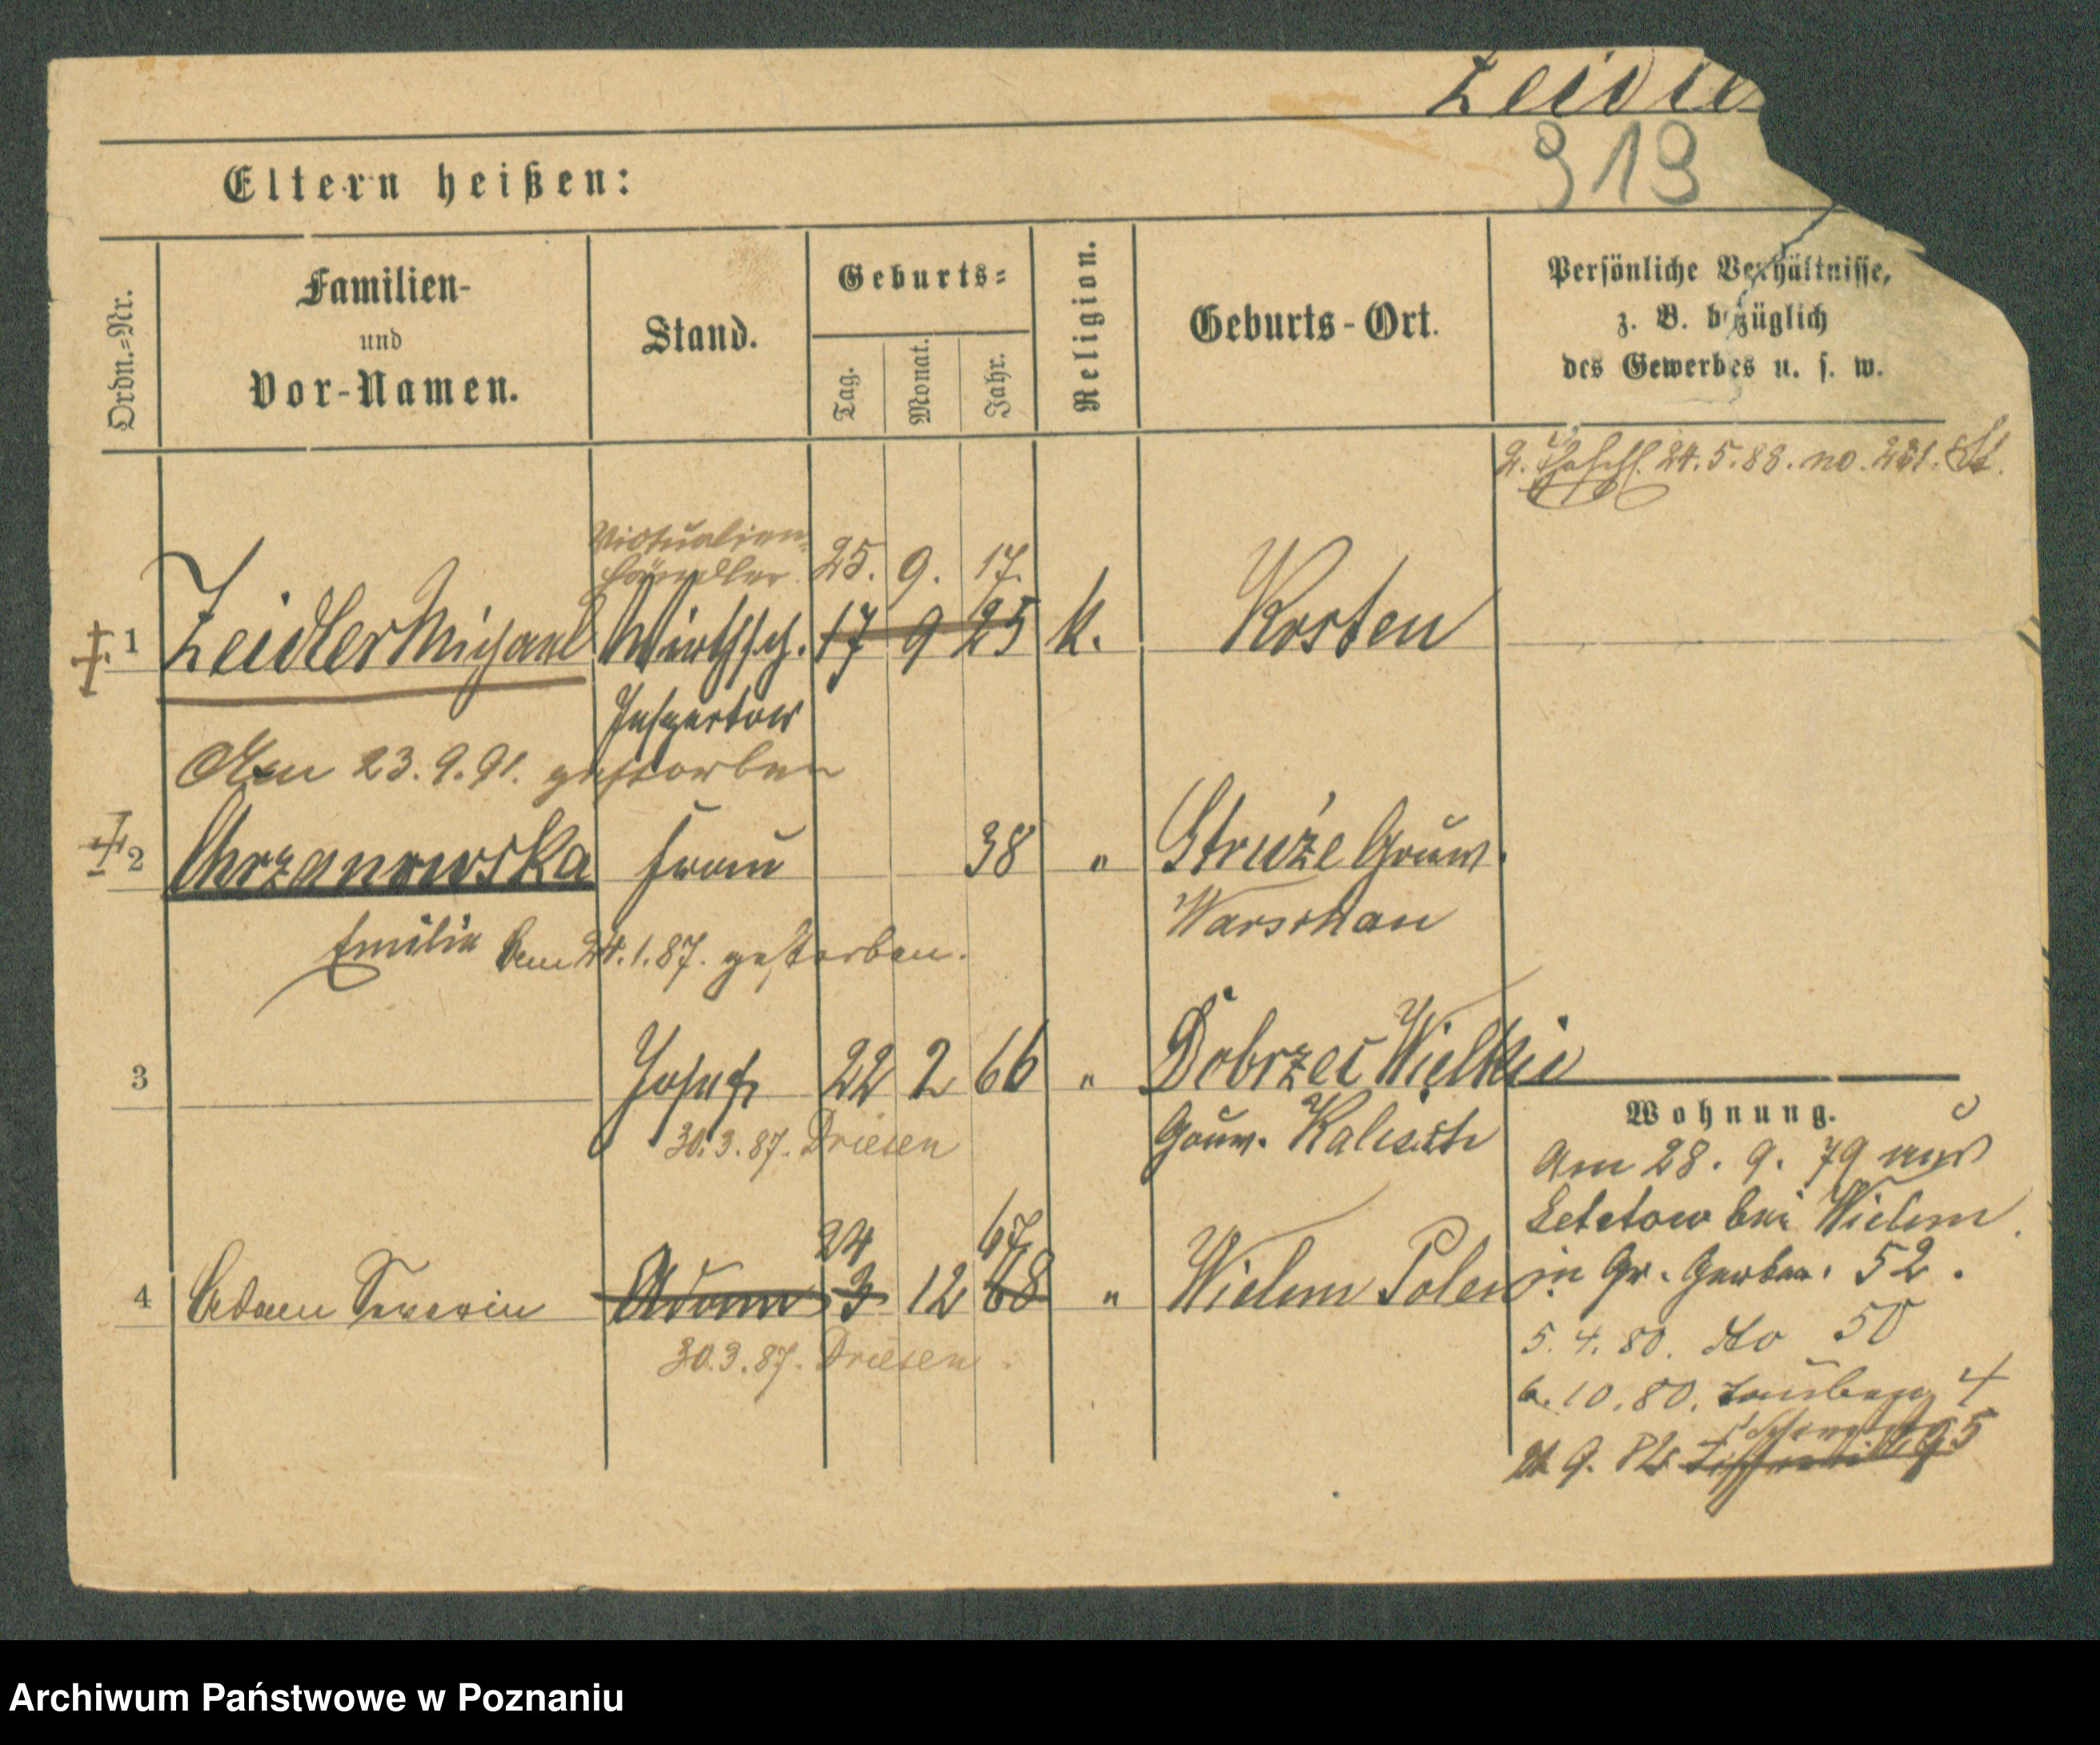 Zeidle
919
Eltern heißen:
Ordn.=Nr.
Familien-
und
Vor-Namen.
Stand.
Geburts=
Tag.
Monat.
Jahr.
Religion.
Geburts-Ort.
Persönliche Verhältnisse,
z. B. bezüglich
des Gewerbes u. s. w.
24.5.88. no. 221.
Victualien-
händler. 25. 9. 17.
1 Zeidler Michael Wirthsch. 17 9 25 k. Kosten
Inspector
Den 23.9.91. gestorben
2 Chrzanowska Frau 38 " Struże Gouv.
Warschau
Emilie Den 24.1.87. gestorben.
3 Josef 22 2 66 " Dobrzec Wielkie
30.3.87. Driesen
Gouv. Kalisch
24 67
4 Adam Severin Adam 3 12 68 " Wielun Polen
30.3.87. Driesen
Wohnung.
Am 28. 9. 79 aus
Letetow bei Wielun
in Gr. Gerber. 52.
5. 4. 80. dto 50
6. 10. 80. 4
9. 82 95
Archiwum Państwowe w Poznaniu